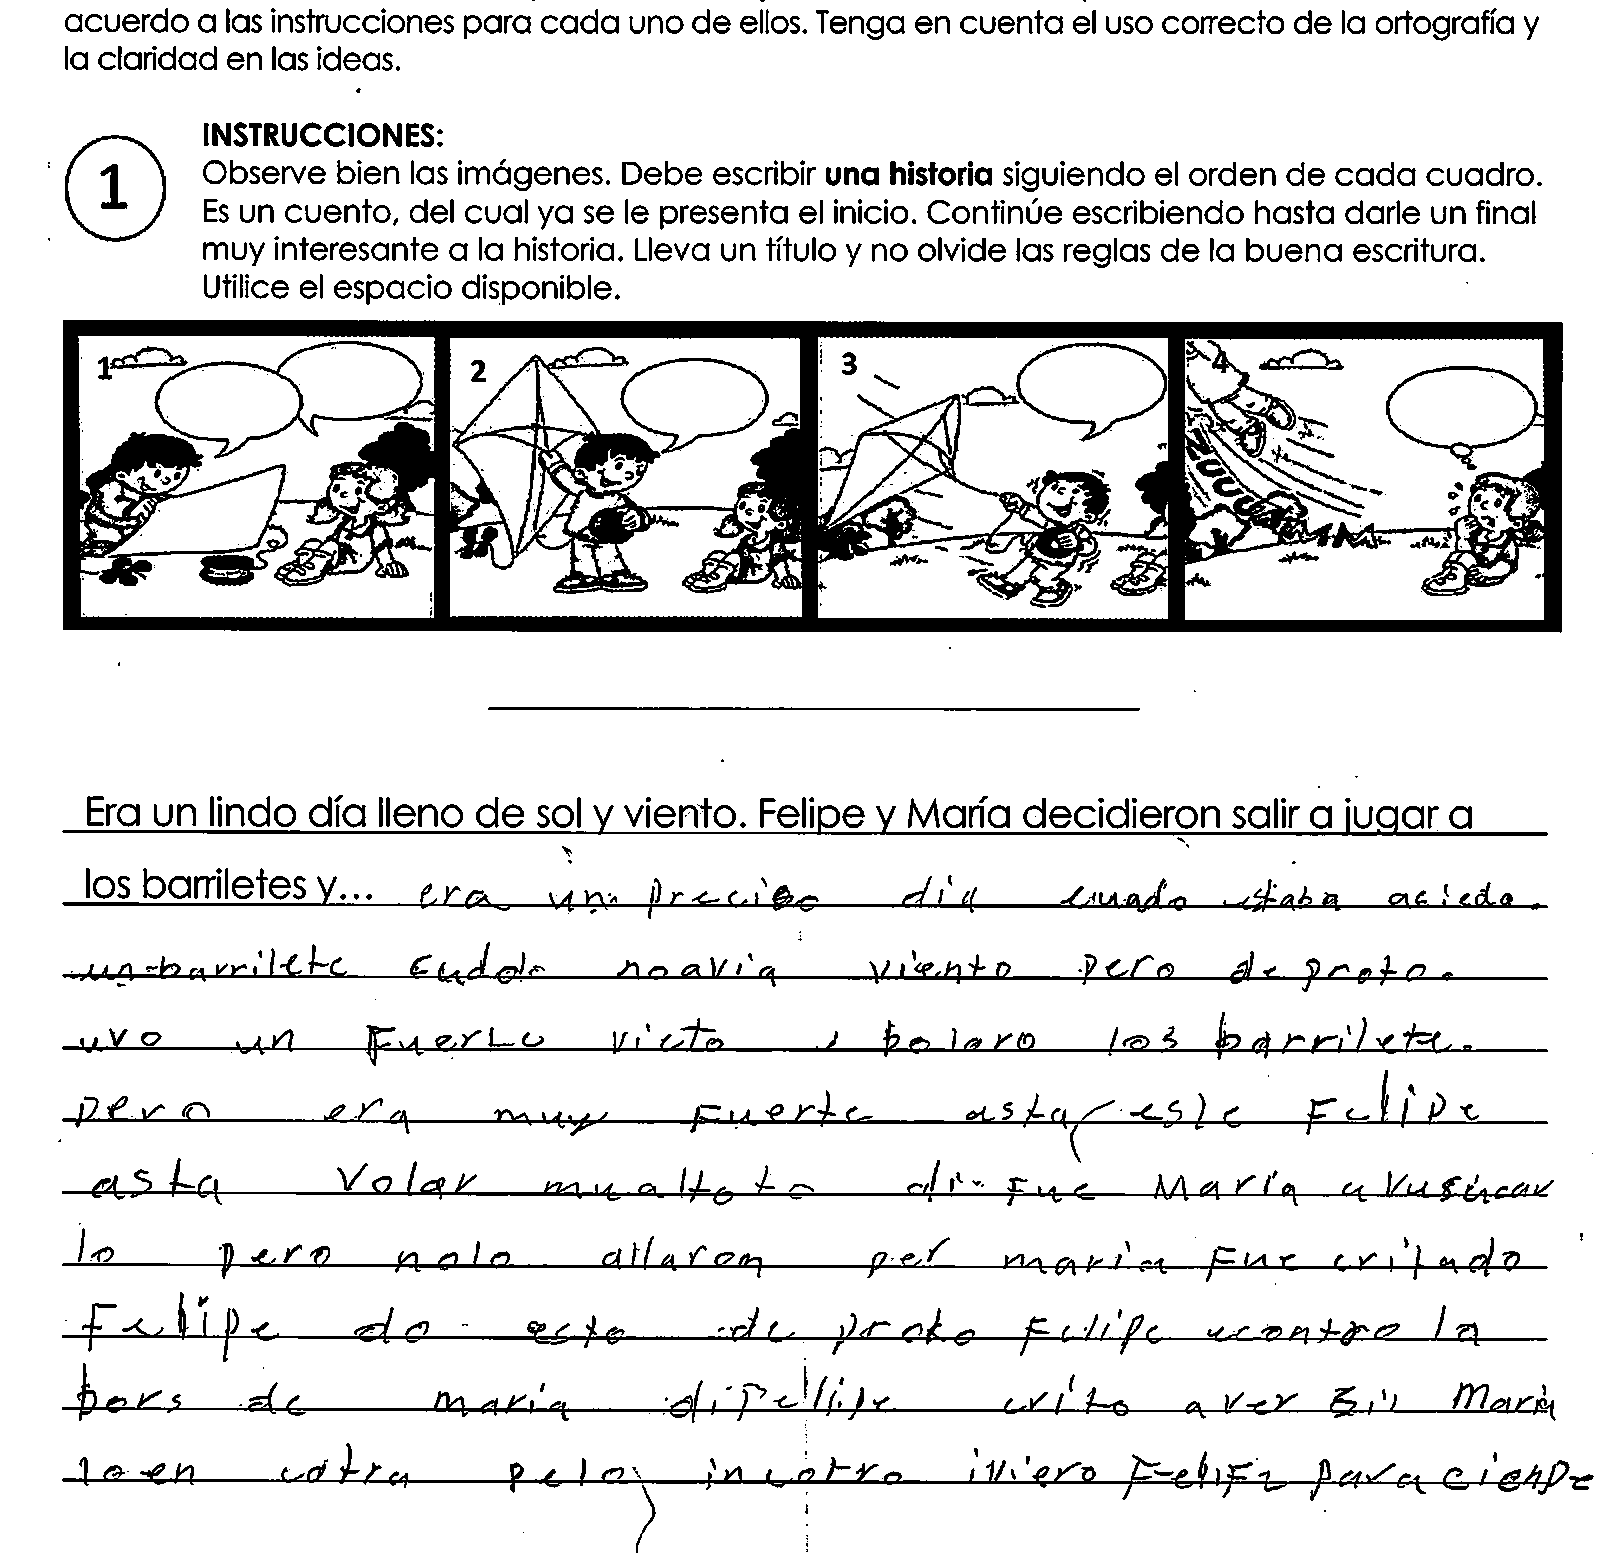 acuerdo a las instrucciones para cada uno de ellos. Tenga en cuenta el uso correcto de la ortografía y
la claridad en las ideas.
1
INSTRUCCIONES:
Observe bien las imágenes. Debe escribir una historia siguiendo el orden de cada cuadro.
Es un cuento, del cual ya se le presenta el inicio. Continúe escribiendo hasta darle un final
muy interesante a la historia. Lleva un título y no olvide las reglas de la buena escritura.
Utilice el espacio disponible.
1 2 3 4
ZUUU
Era un lindo día lleno de sol y viento. Felipe y María decidieron salir a jugar a
los barriletes y... era un precioso día cuado estaba aciedo.
un barrilete noavia viento pero de proto.
uvo un Fuerte vieto bolaro los barrilete.
pero era muy Fuerte asta Felipe
asta volar Fue María a
lo pero nolo allaron per maria Fue critado
Felipe de proto Felipe econtro la
de maria crito a ver María
Felife para cienpe